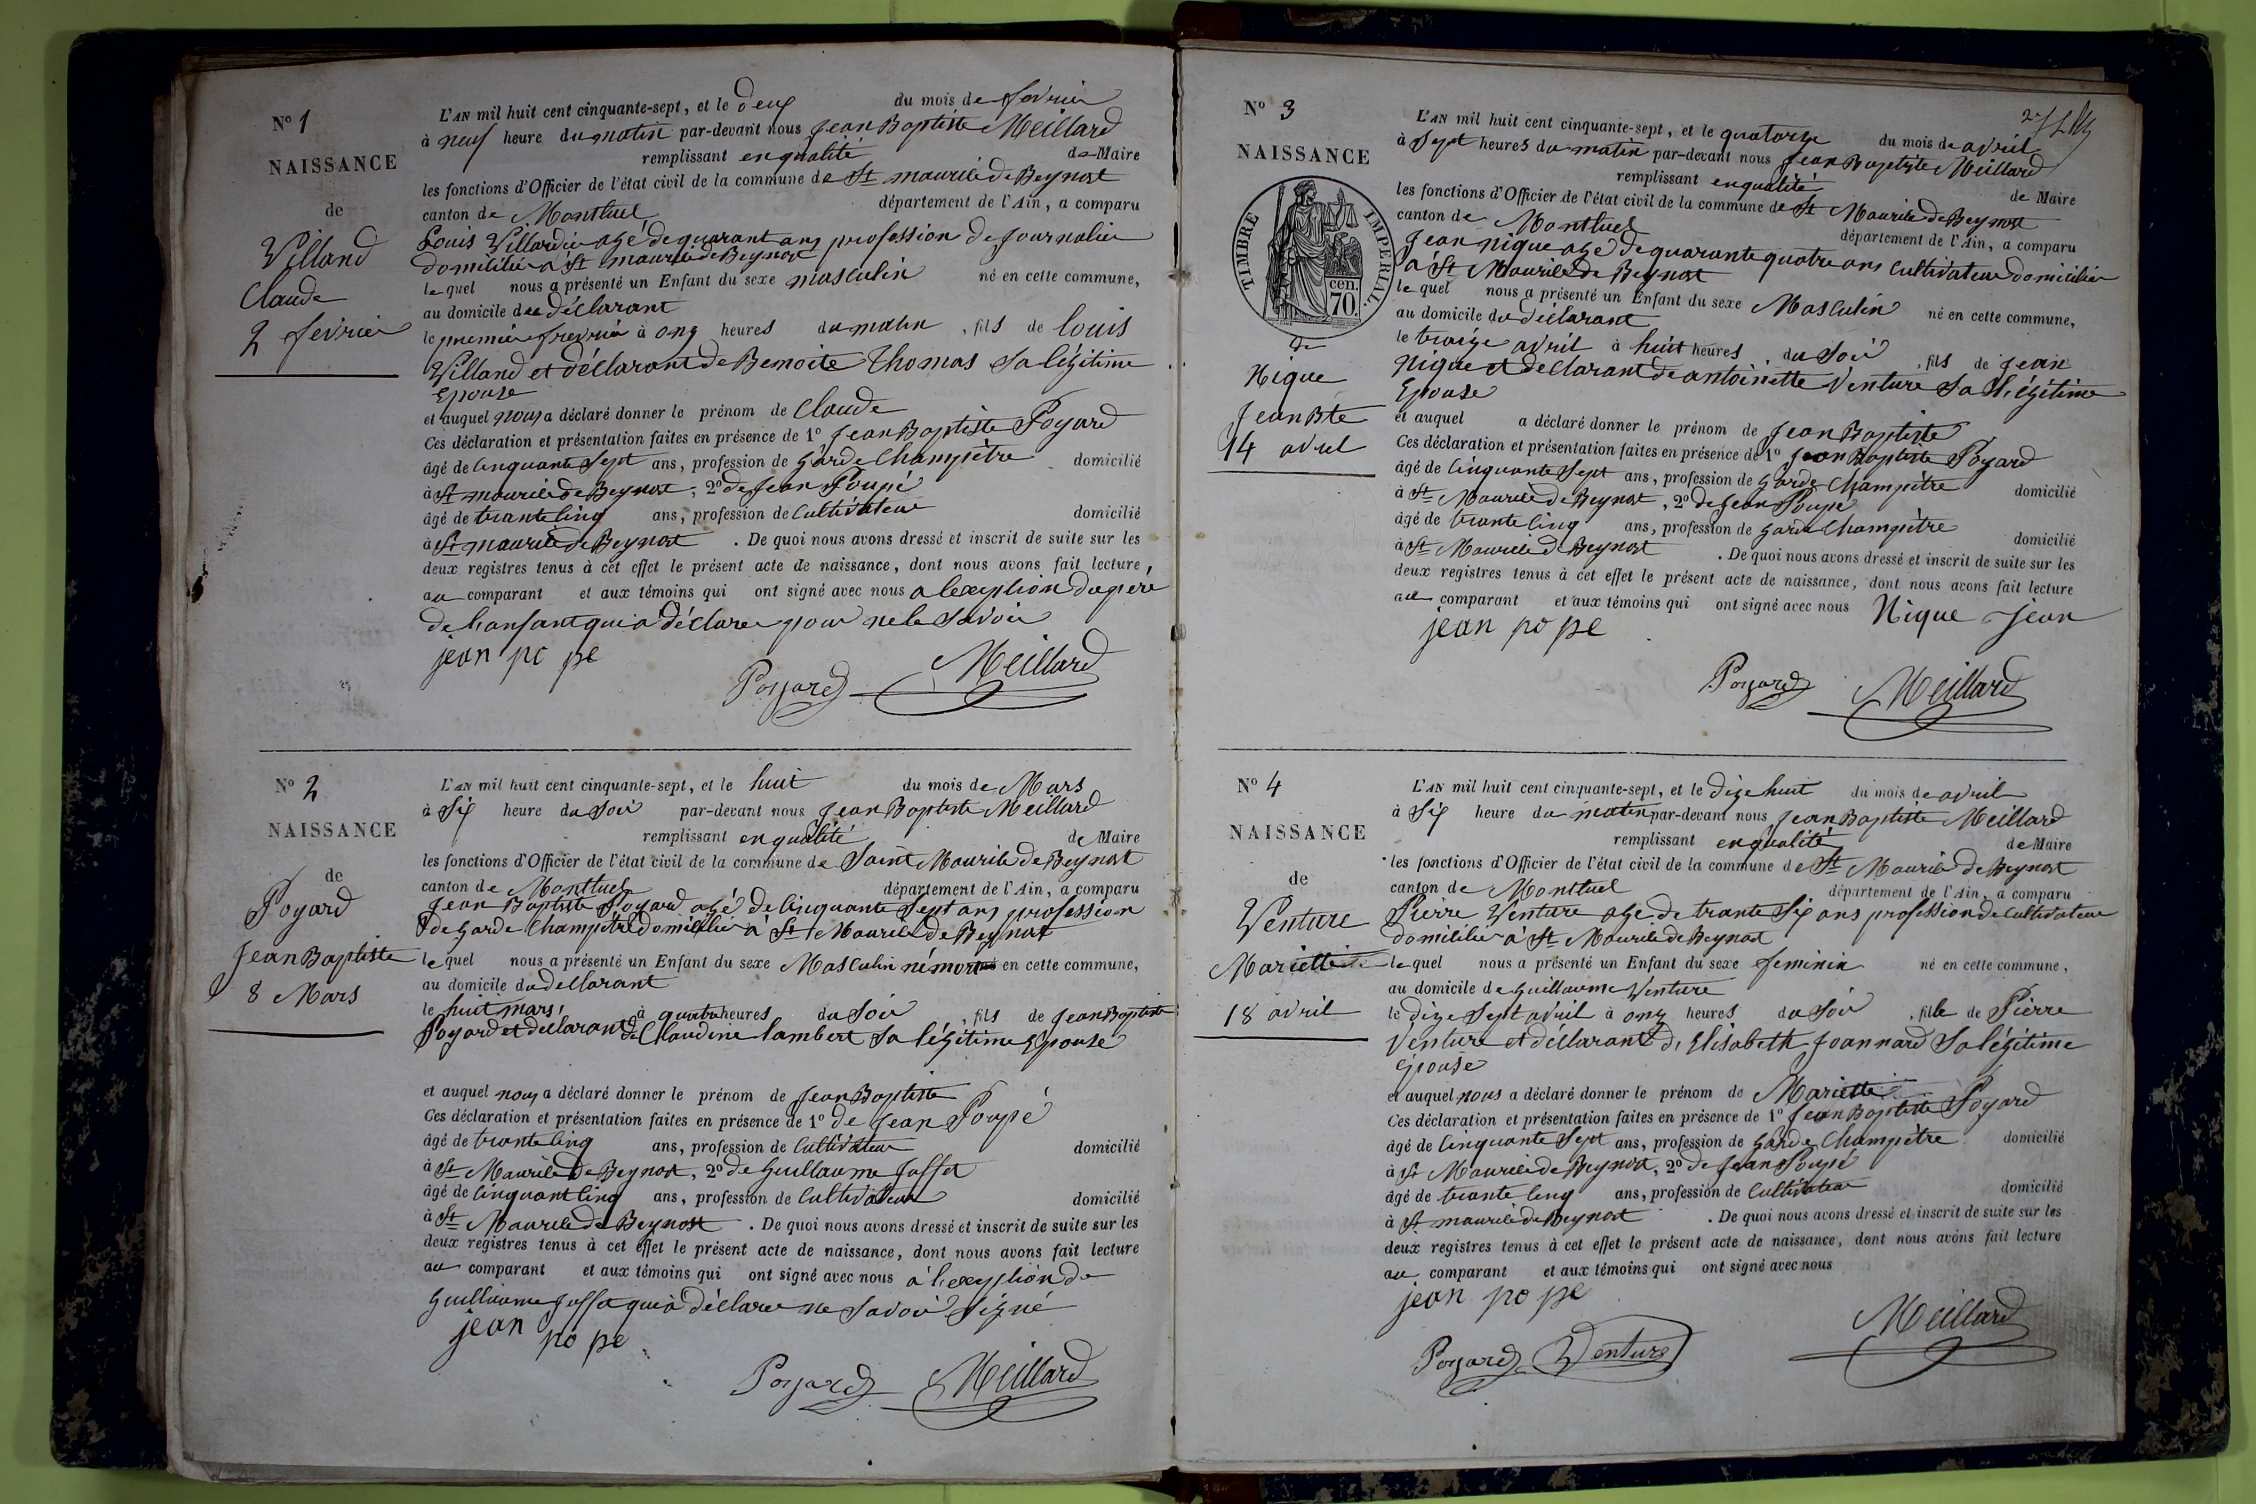 N° 1
NAISSANCE
de
Villand
Claude
2 fevrier
L'AN mil huit cent cinquante-sept, et le deux du mois de fevrier
à neuf heure du matin par-devant nous Jean Baptiste Meillard
remplissant en qualité de Maire
les fonctions d'Officier de l'état civil de la commune de St maurice de Beynost
canton de Montluel département de l'Ain, a comparu
Louis Villand agé de quarant ans profession de Journalier
domicilié à St maurice de Beynost
le quel nous a présenté un Enfant du sexe masculin né en cette commune,
au domicile du déclarant
le premier fevrier à onz heures du matin, fils de Louis
Villand et déclarant de Benoite Thomas Sa légitime
Epouse
et auquel nous a déclaré donner le prénom de Claude
Ces déclaration et présentation faites en présence de 1° Jean Baptiste Poyard
âgé de Cinquante Sept ans, profession de Garde Champètre domicilié
à St maurice de Beynost, 2° de Jean Poupé
âgé de trante Cinq ans, profession de Cultivateur domicilié
à St maurice de Beynost. De quoi nous avons dressé et inscrit de suite sur les
deux registres tenus à cet effet le présent acte de naissance, dont nous avons fait lecture,
au comparant et aux témoins qui ont signé avec nous a lexception du père
de lanfant qui a déclare pour ne le Savoir
jean po pe
Poyard Meillard
N° 2
NAISSANCE
de
Poyard
Jean Baptiste
8 Mars
L'AN mil huit cent cinquante-sept, et le huit du mois de Mars
à Six heure du Soir par-devant nous Jean Baptiste Meillard
remplissant en qualité de Maire
les fonctions d'Officier de l'état civil de la commune de Saint Maurice de Beynost
canton de Montluel département de l'Ain, a comparu
Jean Baptiste Poyard agé de Cinquante Sept ans profession
de Garde Champétre domicilié à St Maurice de Beynost
le quel nous a présenté un Enfant du sexe Masculin né mort en cette commune,
au domicile du déclarant
le huit mars, à quatre heures du Soir, fils de Jean Baptiste
Poyard et déclarant de Claudine Lambert Sa légitime Epouse
et auquel nous a déclaré donner le prénom de Jean Baptiste
Ces déclaration et présentation faites en présence de 1° de Jean Poupé
âgé de trante Cinq ans, profession de Cultivateur domicilié
à St Maurice de Beynost, 2° de Guillaume Joffet
âgé de Cinquant Cinq ans, profession de Cultivateur domicilié
à St Maurice de Beynost. De quoi nous avons dressé et inscrit de suite sur les
deux registres tenus à cet effet le présent acte de naissance, dont nous avons fait lecture
au comparant et aux témoins qui ont signé avec nous à l'exception de
Guillaume Joffet qui a déclare ne Savoir Signé
jean po pe
Poyard Meillard
N° 3
NAISSANCE
TIMBRE IMPERIAL.
cen.
70.
de
Nique
Jean Bte
14 avril
L'AN mil huit cent cinquante-sept, et le quatorze du mois de avril
à Sept heures du matin par-devant nous Jean Baptiste Meillard
remplissant en qualité de Maire
les fonctions d'Officier de l'état civil de la commune de St Maurice de Beynost
canton de Montluel département de l'Ain, a comparu
Jean Nique agé de quarante quatre ans Cultivateur domicilié
à St Maurice de Beynost
le quel nous a présenté un Enfant du sexe Masculin né en cette commune,
au domicile du déclarant
le traize avril à huit heures du Soir, fils de Jean
Nique et déclarant de antoinette Venture Sa légitime
Epouse
et auquel a déclaré donner le prénom de Jean Baptiste
Ces déclaration et présentation faites en présence de 1° Jean Baptiste Poyard
âgé de Cinquante Sept ans, profession de Garde Champétre domicilié
à St Maurice de Beynost, 2° de Jean Poupé
âgé de trante Cinq ans, profession de Garde Champétre domicilié
à St Maurice de Beynost. De quoi nous avons dressé et inscrit de suite sur les
deux registres tenus à cet effet le présent acte de naissance, dont nous avons fait lecture
au comparant et aux témoins qui ont signé avec nous Nique Jean
jean po pe
Poyard Meillard
N° 4
NAISSANCE
de
Venture
Mariette
18 avril
L'AN mil huit cent cinquante-sept, et le dize huit du mois de avril
à Six heure du matin par-devant nous Jean Baptiste Meillard
remplissant en qualité de Maire
les fonctions d'Officier de l'état civil de la commune de St Maurice de Beynost
canton de Montluel département de l'Ain, a comparu
Pierre Venture agé de trante Six ans profession de Cultivateur
domicilié à St Maurice de Beynost
le quel nous a présenté un Enfant du sexe feminin né en cette commune,
au domicile de Guillaume Venture
le dize Sept avril à onz heures du Soir, fille de Pierre
Venture et déclarant de Elisabeth Joannard Sa légitime
épouse
et auquel nous a déclaré donner le prénom de Mariette
Ces déclaration et présentation faites en présence de 1° Jean Baptiste Poyard
âgé de Cinquante Sept ans, profession de Garde Champétre domicilié
à St Maurice de Beynost, 2° de Jean Poupé
âgé de trante Cinq ans, profession de Cultivateur domicilié
à St maurice de Beynost. De quoi nous avons dressé et inscrit de suite sur les
deux registres tenus à cet effet le présent acte de naissance, dont nous avons fait lecture
au comparant et aux témoins qui ont signé avec nous
jean po pe
Meillard
Poyard Venture